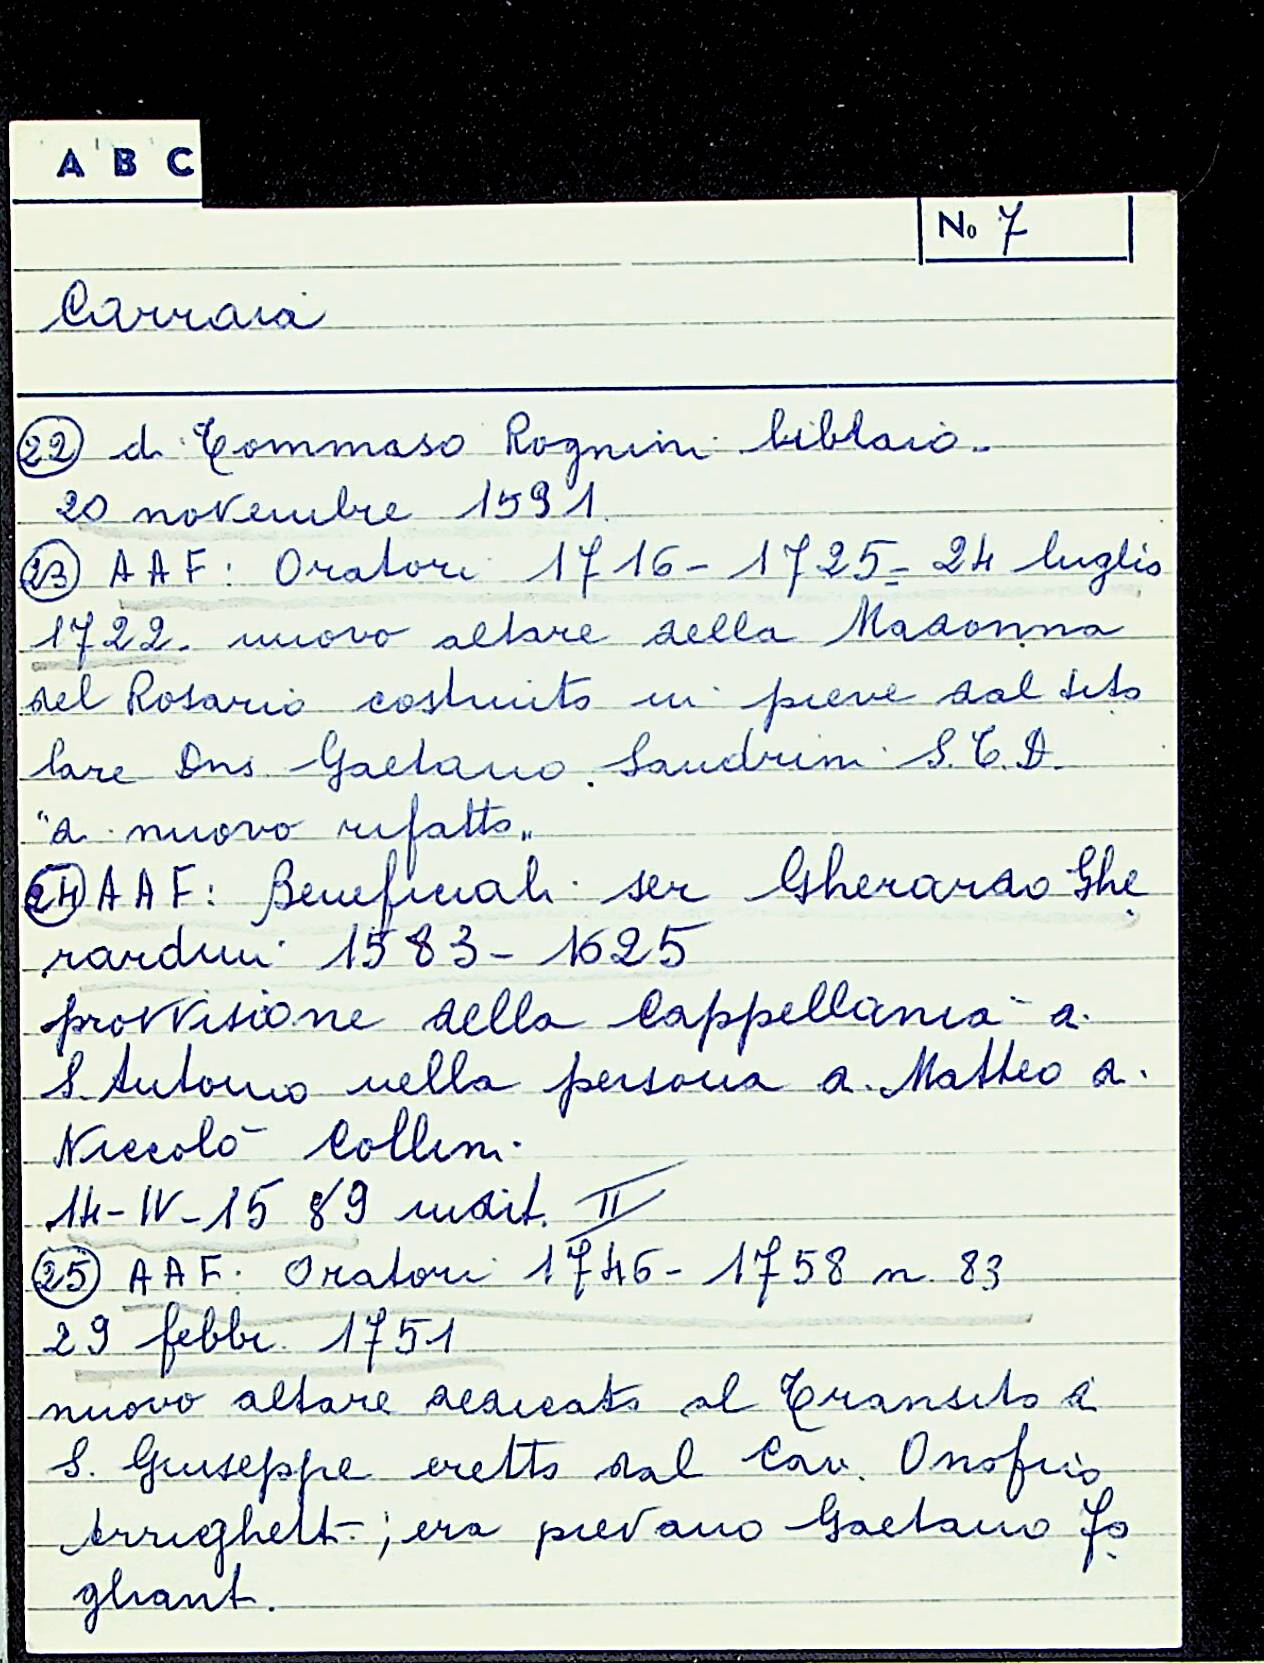 A B C
No 7
Carraia
22 di Tommaso Rognini libraio.
20 novembre 1591
23 AAF: Oratori 1716-1725= 24 luglio
1722. nuovo altare della Madonna
del Rosario costruito in pieve dal tito
lare Dns. Gaetano Sandrini S.T.D.
"di nuovo rifatto"
24 AAF: Beneficiali ser Gherardo Ghe
rardini 1583-1625
provvisione della Cappellania di
S. Antonio nella persona di Matteo di
Niccolò Collini
14-IV-1589 indit. II
25 AAF: Oratori 1746-1758 n. 83
29 febbr. 1751
nuovo altare dedicato al Transito di
S. Giuseppe eretto dal Cav. Onofrio
Arrighetti; era pievano Gaetano Fo
glianti.